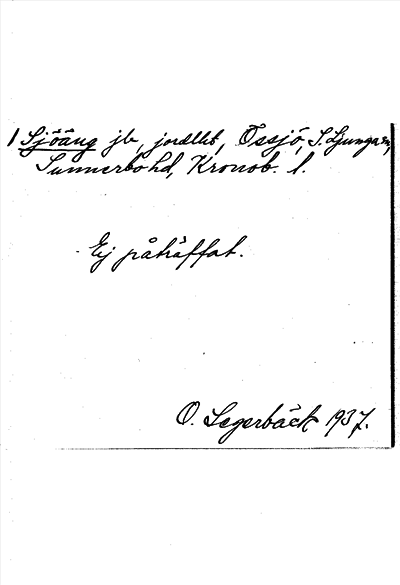 1 Sjöäng jb, jordlht, Össjö, S. Ljunga sn,
Sunnerbo hd, Kronob. l.
Ej påträffat.
O. Segerbäck 1937.